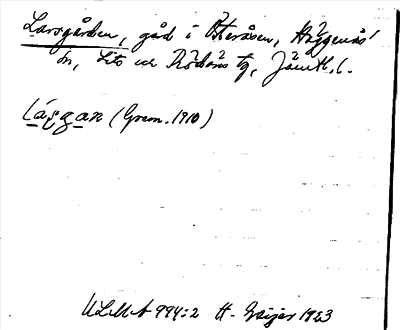 Larsgården, gård i Österåsen, Häggenås'
sn, Lits och Rödöns tg, Jämtl. l.
Lásgan (Grem. 1910)
ULMA 994:2 H. Geijer 1923